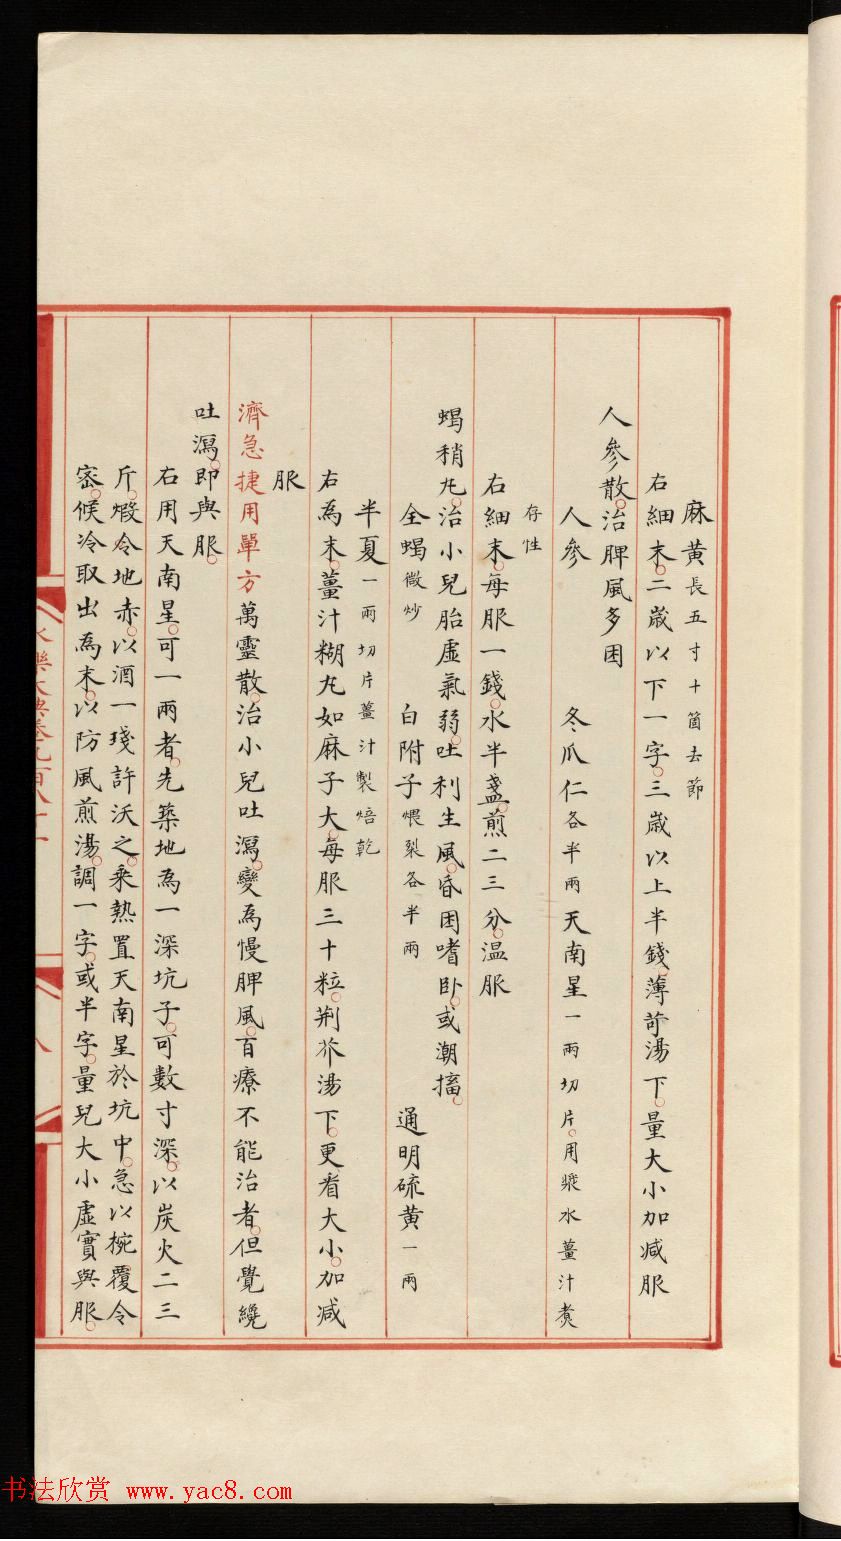 麻黄長五寸十箇去節
右細末二歲以下一字三歲以上半錢薄荷湯下量大小加减服
人參散治脾風多困
人參 冬瓜仁各半兩天南星一兩切片用漿水薑汁煑
存性
右細末每服一錢水半盞煎二三分温服
蝎稍丸治小兒胎虛氣弱吐利生風昏困嗜卧或潮搐
全蝎微炒 白附子煨裂各半兩 通明硫黄一兩
半夏一兩切片薑汁製焙乾
右為末薑汁糊丸如麻子大每服三十粒荆芥湯下更看大小加减
服
濟急捷用單方萬靈散治小兒吐瀉變為慢脾風百療不能治者但覺纔
吐瀉即與服
右用天南星可一兩者先築地為一深坑子可數寸深以炭火二三
斤煅令地赤以酒一琖許沃之乘熱置天南星於坑中急以椀覆令
密候冷取出為末以防風煎湯調一字或半字量兒大小虛實與服
永樂大典卷九百八十一
八
书法欣赏 www.yac8.com